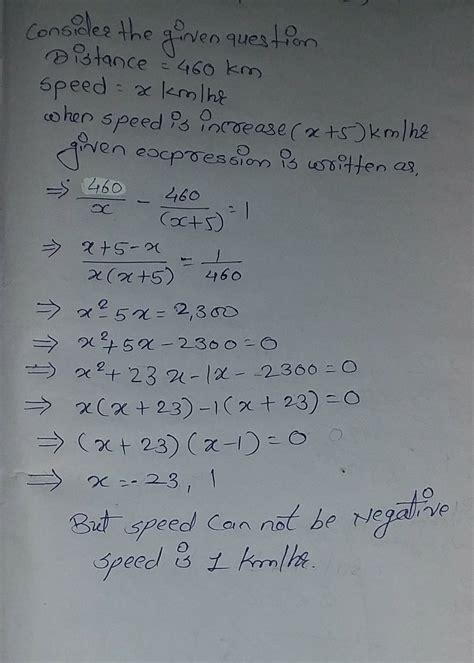 Consider the given question
Distance = 460 km
speed = x km/hr
when speed is increase (x+5) km/hr
given eocpression is written as,
⇒ 460/x - 460/(x+5) = 1
⇒ x+5-x/x(x+5) = 1/460
⇒ x²-5x = 2,300
⇒ x²+5x-2300=0
⇒ x²+23x-1x--2300=0
⇒ x(x+23)-1(x+23)=0
⇒ (x+23)(x-1)=0
⇒ x=-23, 1
But speed can not be Negative
speed is 1 km/hr.